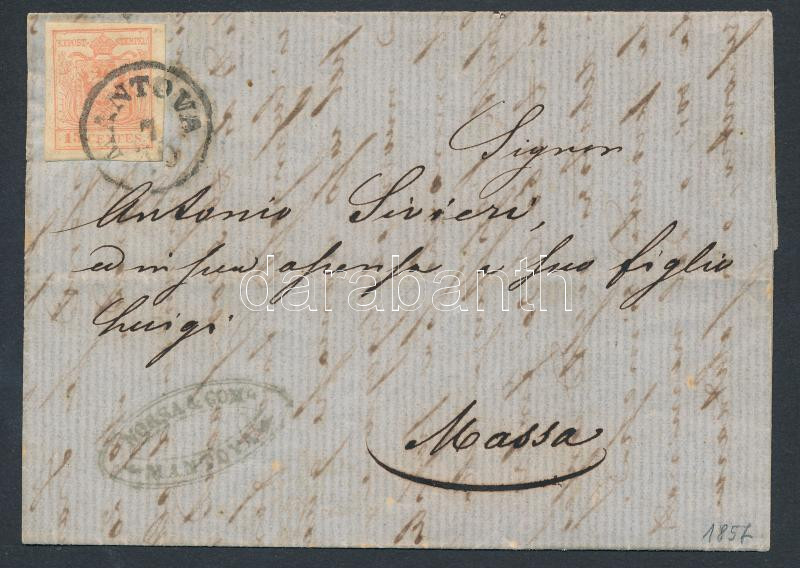 K.K.POST-STEMPEL
15 CENTES.
MANTOVA
7
Signor
Antonio Sivieri,
ed in sua assenza a suo figlio
Luigi
darabanth
NORSA & COM.
MANTOVA
Massa
1857